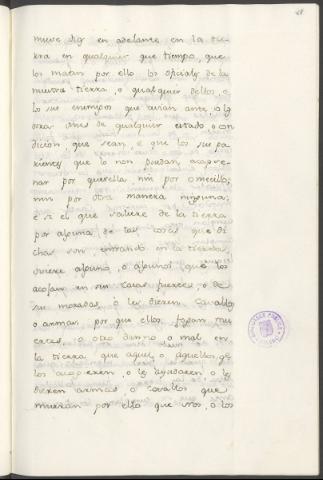 nueve dias en adelante en la tie-
rra en qualquier que tiempo, que
los maten por ello los oficiales de la
nuestra tierra, o qualquier dellos, o
los sus enemigos que avian ante, o
otra ome de qualquier estado, o con
dicion, que sean, e que los sus pa-
rientes que lo non puedan, acape-
nar por querella nin por omecillo,
nin por otra manera ninguna;
e si el que saliere de la tierra
por alguna de las cosas que di-
chas son, entrando en la tierra
oviere alguno, o algunos que los
acojan en sus casas fuertes, o de
su moradas, o les dieren cavallos
o armas por que ellos fagan mu
ertes, o otro danno o mal en
la tierra que aquel, o aquellos qe
los acogieren, o les ayudaren o les
dieren armas o cavallos que
mueran por ello que nos, o los